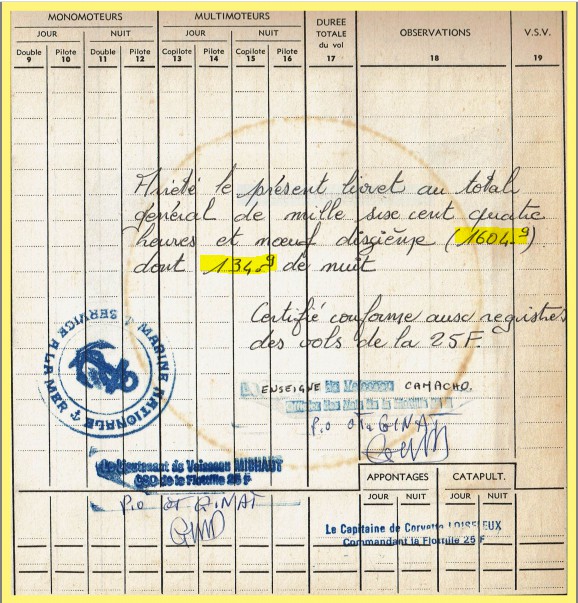 MONOMOTEURS MULTIMOTEURS DUREE TOTALE du vol OBSERVATIONS V.S.V.
JOUR NUIT JOUR NUIT
Double Pilote Double Pilote Copilote Pilote Copilote Pilote
9 10 11 12 13 14 15 16 17 18 19
Arrêté le présent livret au total
général de mille sixe cent quatre
heures et nœuf dixième (1604.9)
dont 134.9 de nuit
Certifié conforme aux registres
des vols de la 25F.
MARINE NATIONALE
⚓ SERVICE A LA MER ⚓
ENSEIGNE de Vaisseau CAMACHO.
Officier des Vols de la
P.o OT GINAT
Le Lieutenant de Vaisseau MICHAUT
CSD de la Flottille 25 F
P.o OT GINAT
APPONTAGES CATAPULT.
JOUR NUIT JOUR NUIT
Le Capitaine de Corvette LOISELEUX
Commandant la Flottille 25 F